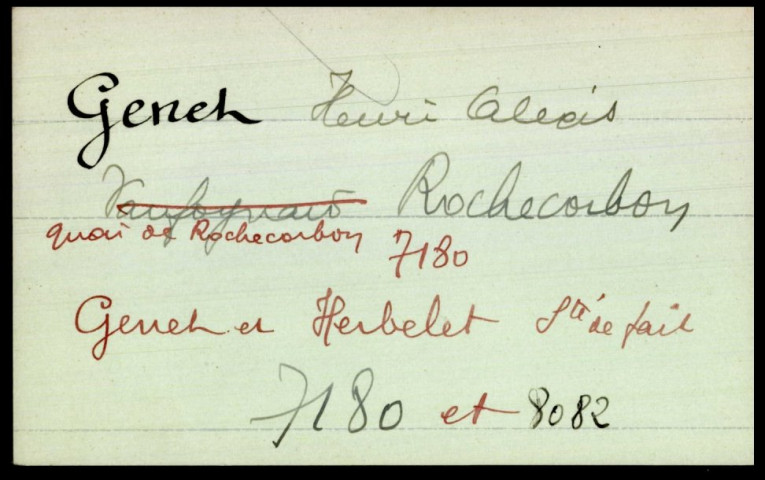 Genet Henri Alexis
Vaufoynard Rochecorbon
quai de Rochecorbon 7180
Genet et Herbelet Sté de fait
7180 et 8082